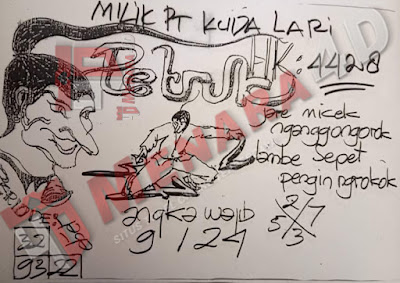 MILIK PT KUDA LARI
HK: 4428
Tere micek
nganggo ngorok
lambe sepet
pengin ngrokok
angka wajib
9 / 24
2 7
5 3
32
93 22
MENARA 4D